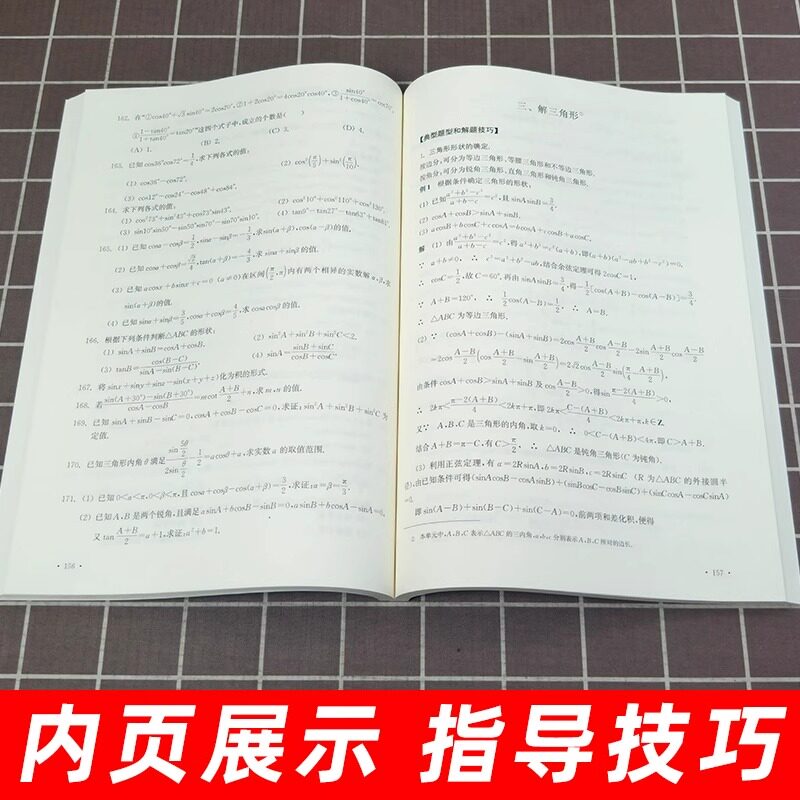 162. 在“①cos40°+√3sin40°=2cos20°,②1+2cos20°=4cos20°cos40°,③sin40°/(1+cos40°)=cos70°,
④(1-tan40°)/(1+tan40°)=tan20°”这四个式子中,成立的个数是( )
(A) 1. (B) 2. (C) 3. (D) 4.
163. 已知cos36°cos72°=1/4,求下列各式的值:
(1) cos36°-cos72°. (2) cos²(π/5)+sin²(π/10).
(3) cos12°-cos24°-cos48°+cos84°.
164. 求下列各式的值:
(1) cos²73°+sin²43°+cos73°sin43°. (2) cos²10°+cos²110°+cos²130°.
(3) sin10°sin50°-sin50°sin70°-sin70°sin10°. (4) tan9°-tan27°-tan63°+tan81°
165. (1) 已知cosα-cosβ=1/2,sinα-sinβ=-1/3,求sin(α+β),cos(α-β)的值.
(2) 已知 ,tan(α+β)=-4/3,求sinα+sinβ的值.
(3) 已知acosx+bsinx+c=0 (a≠0)在区间(π/2,π)内有两个相异的实数解α,β,求
sin(α+β)的值.
(4) 已知sinα+sinβ=3/5,cosα+cosβ=4/5,求cosαcosβ的值.
166. 根据下列条件判断△ABC的形状:
(1) sinA+sinB=cosA+cosB. (2) sin²A+sin²B+sin²C<2.
(3) tanB=cos(B-C)/(sinA-sin(B-C)). (4) sinA=(sinB+sinC)/(cosB+cosC).
167. 将sinx+siny+sinz-sin(x+y+z)化为积的形式.
168. 若(sin(A+30°)-sin(B+30°))/(cosA-cosB)=mcot((A+B)/2)+n,求m,n的值.
169. 已知sinA+sinB-sinC=0,cosA+cosB-cosC=0,求证:sin²A+sin²B+sin²C为
定值.
170. 已知三角形内角θ满足sin(5θ/2)/(2sin(θ/2))-1/2=acosθ+a,求实数a的取值范围.
171. (1) 已知0<α<π,0<β<π,且cosα+cosβ-cos(α+β)=3/2,求证:α=β=π/3.
(2) 已知A,B是两个锐角,且满足asinA+bsinB-sinB=0,asinB+bcosA-sinA=0,
又tan((A+B)/2)=a+1,求证:a²+b²=1.
· 156 ·
三、解三角形①
【典型题型和解题技巧】
1. 三角形形状的确定.
按边分,可分为等边三角形、等腰三角形和不等边三角形.
按角分,可分为锐角三角形、直角三角形和钝角三角形.
例1 根据条件确定三角形的形状.
(1) 已知(a³+b³-c³)/(a+b-c)=c²,且sinAsinB=3/4.
(2) cosA+cosB>sinA+sinB.
(3) acosB+bcosC+ccosA=bcosA+ccosB+acosC.
解 (1) 由(a³+b³-c³)/(a+b-c)=c²,得a³+b³=c²(a+b),即(a+b)(a²-ab+b²-c²)=0.
∵ a+b≠0, ∴ c²=a²+b²-ab,结合余弦定理可得2cosC=1,
∴ cosC=1/2,故C=60°,再由sinAsinB=3/4,得-1/2[cos(A+B)-cos(A-B)]=3/4.
∵ A+B=120°, ∴ 1/2cos(A-B)=1/2, ∴ A=B.
∴ △ABC为等边三角形.
(2) ∵ (cosA+cosB)-(sinA+sinB)=2cos((A+B)/2)cos((A-B)/2)-2sin((A+B)/2)cos((A-B)/2)
=2cos((A-B)/2)(cos((A+B)/2)-sin((A+B)/2))=2√2cos((A-B)/2)sin(π/4-(A+B)/2),
由条件cosA+cosB>sinA+sinB及cos((A-B)/2)>0,得sin((π-2(A+B))/4)>0,
∴ 2kπ<(π-2(A+B))/4<2kπ+π,即2kπ<(C-(A+B))/4<2kπ+π,k∈Z.
又∵ A,B,C是三角形的内角,取k=0, ∴ 0<C-(A+B)<4π,即C>A+B.
结合A+B=π-C,有C>π/2, ∴ △ABC是钝角三角形(C为钝角).
(3) 利用正弦定理,有a=2RsinA,b=2RsinB,c=2RsinC (R为△ABC的外接圆半
径),由已知条件可得(sinAcosB-cosAsinB)+(sinBcosC-cosBsinC)+(sinCcosA-cosCsinA)
=0.
即sin(A-B)+sin(B-C)+sin(C-A)=0,前两项和差化积,便得
① 本单元中,A,B,C表示△ABC的三内角,a,b,c分别表示A,B,C所对的边长.
· 157 ·
内页展示 指导技巧